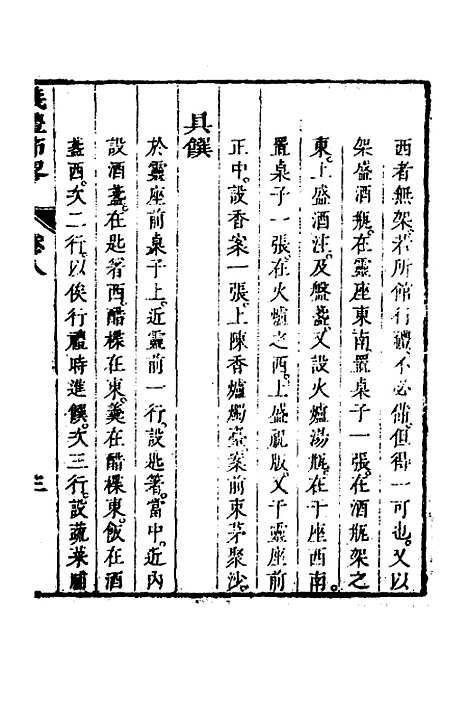 西者無架若所館行禮不必備但得一可也又以
架盛酒瓶在靈座東南置桌子一張在酒瓶架之
東上盛酒注及盤盞又設火爐湯瓶在于座西南
置桌子一張在火爐之西上盛祝版又于靈座前
正中設香案一張上陳香爐燭臺案前束茅聚沙
具饌
於靈座前桌子上近靈前一行設匙箸當中近內
設酒盞在匙箸西醋楪在東羹在醋楪東飯在酒
盞西次二行以俟行禮時進饌次三行設蔬菜脯
儀禮節畧
卷八
三